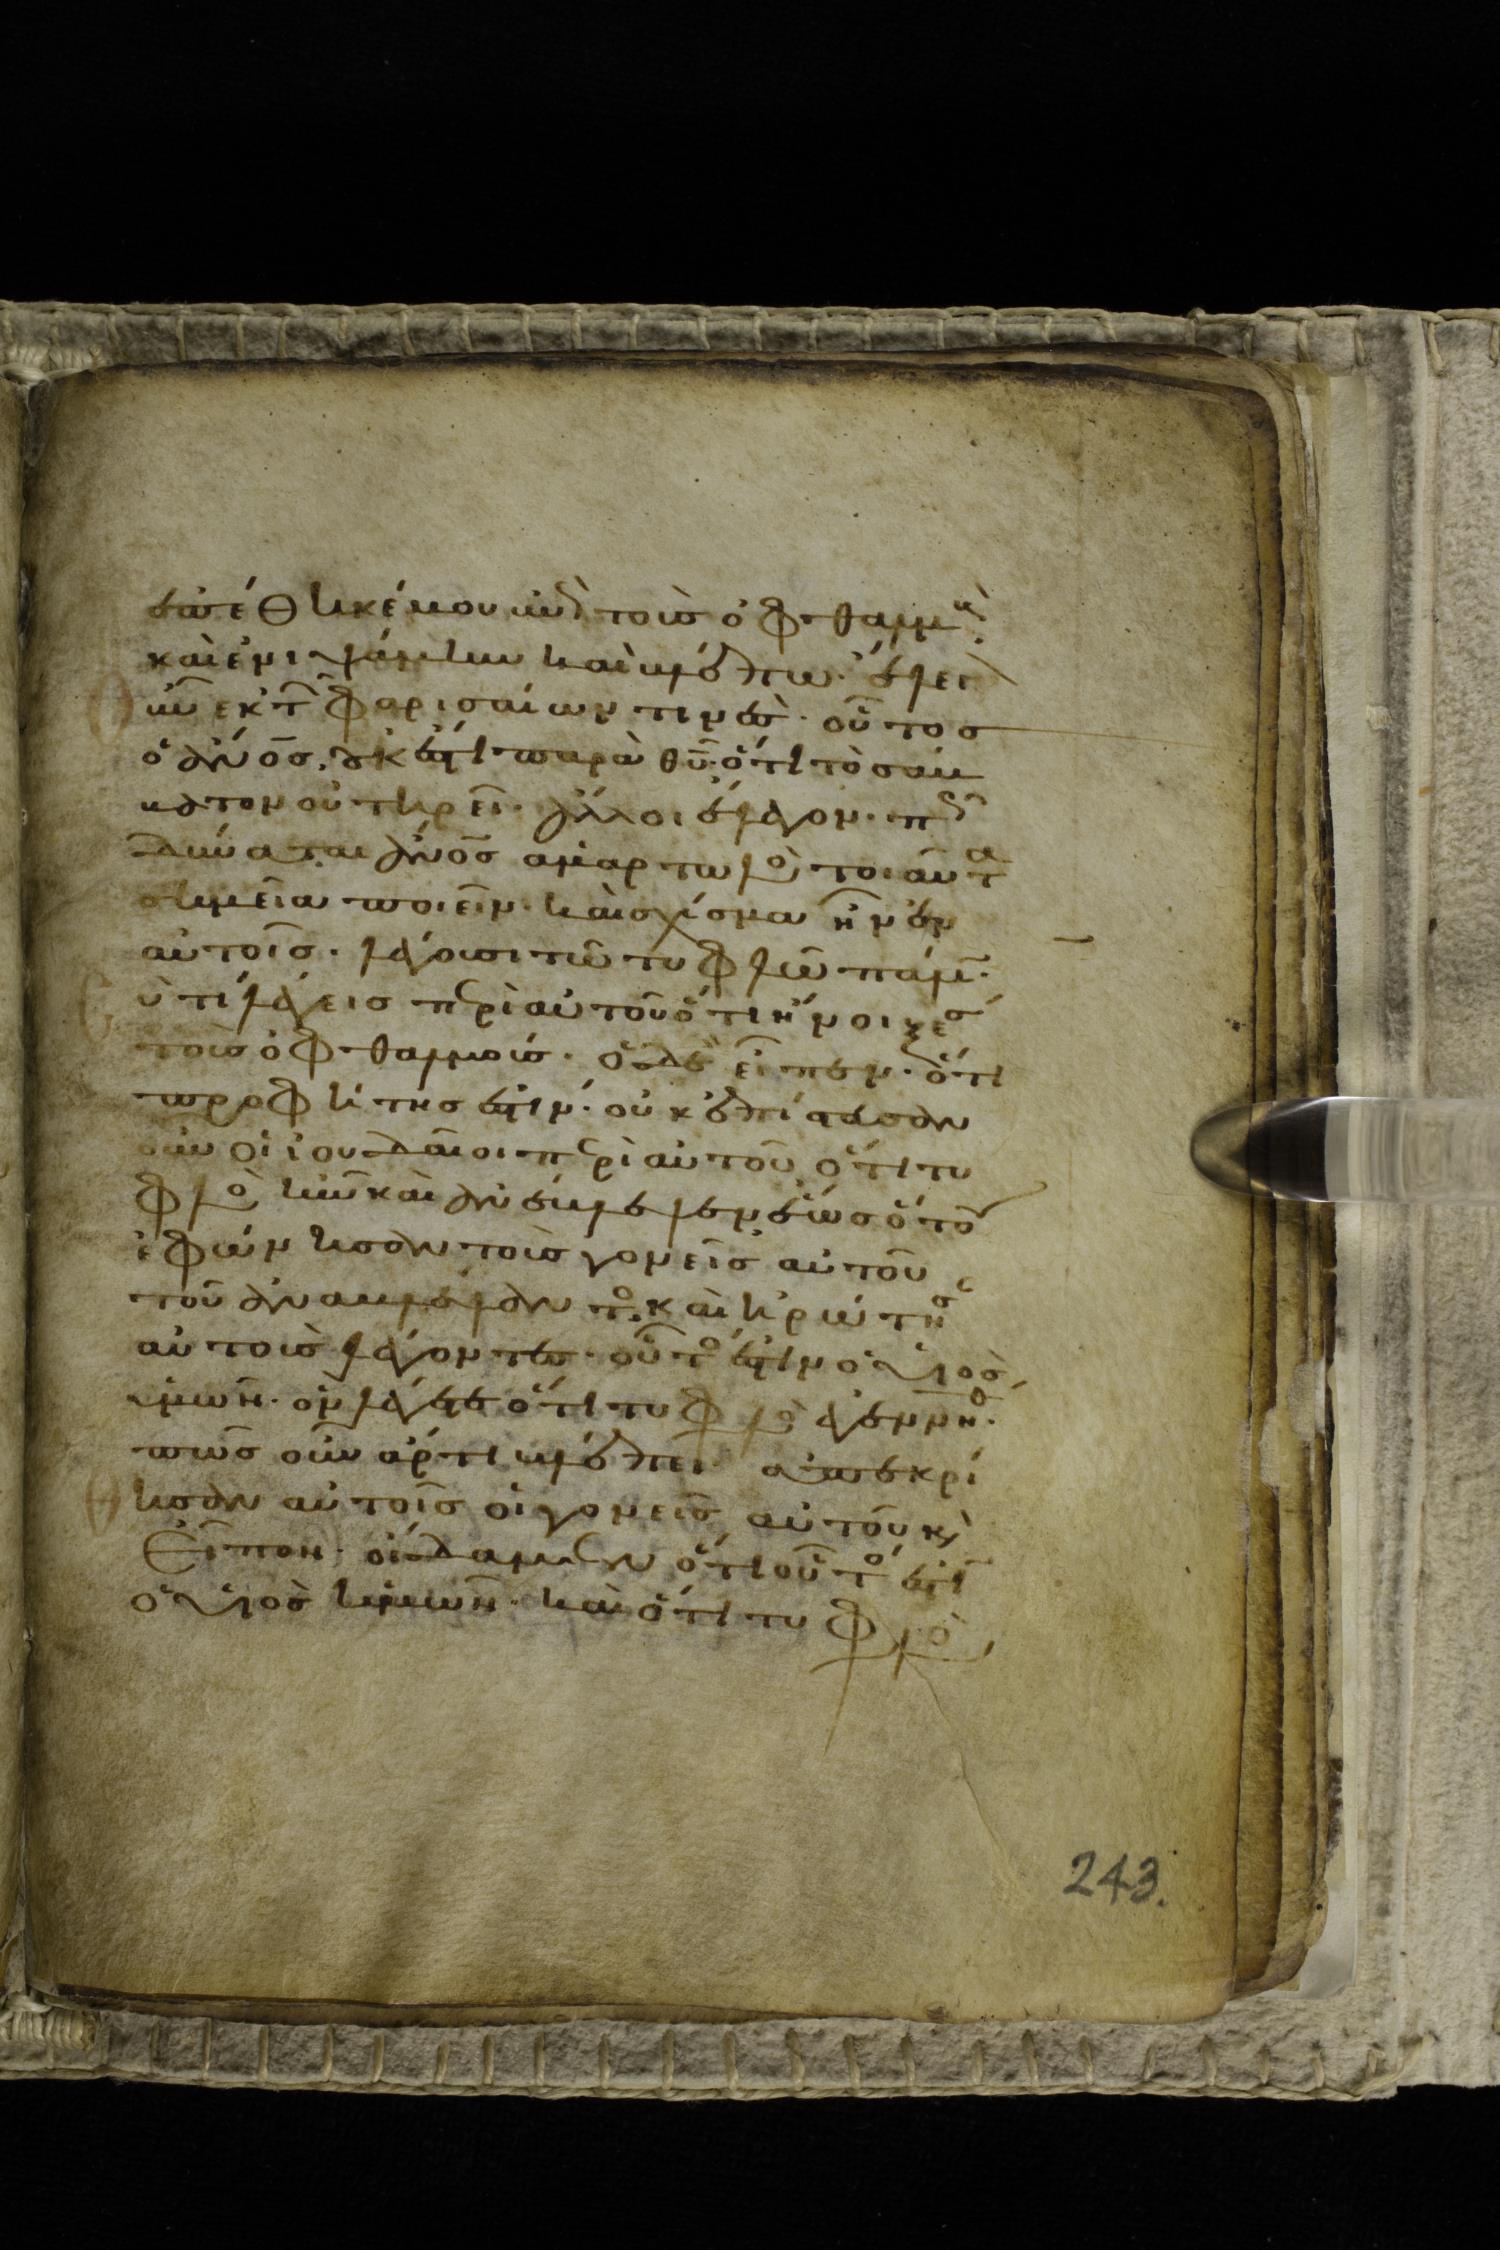 ἐπέθηκέ μου ἐπὶ τοὺς ὀφθαλμοὺς
καὶ ἐνιψάμην καὶ βλέπω· ἔλεγον
οὖν ἐκ τῶν φαρισαίων τινές· οὗτος
ὁ ἄνος οὐκ ἔστι παρὰ θυ· ὅτι τὸ σάβ
βατον οὐ τηρεῖ· ἄλλοι ἔλεγον· πῶς
δύναται ἄνος ἁμαρτωλὸς τοιαῦτα
σημεῖα ποιεῖν· καὶ σχίσμα ἦν ἐν
αὐτοῖς· λέγουσι τῷ τυφλῷ πάλιν·
σὺ τί λέγεις περὶ αὐτοῦ ὅτι ἤνοιξέ σου
τοὺς ὀφθαλμούς· ὁ δὲ εἶπεν· ὅτι
προφήτης ἐστίν· οὐκ ἐπίστευσαν
οὖν οἱ ἰουδαῖοι περὶ αὐτοῦ ὅτι τυ
φλὸς ἦν καὶ ἀνέβλεψεν ἕως ὅτου
ἐφώνησαν τοὺς γονεῖς αὐτοῦ
τοῦ ἀναβλέψαντος καὶ ἠρώτησαν
αὐτοὺς λέγοντες· οὗτός ἐστιν ὁ υἱὸς
ὑμῶν· ὃν λέγετε ὅτι τυφλὸς ἐγεννήθη·
πῶς οὖν ἄρτι βλέπει· ἀπεκρί
θησαν αὐτοῖς οἱ γονεῖς αὐτοῦ καὶ
εἶπον· οἴδαμεν ὅτι οὗτός ἐστιν
ὁ υἱὸς ἡμῶν· καὶ ὅτι τυφλὸς
243.